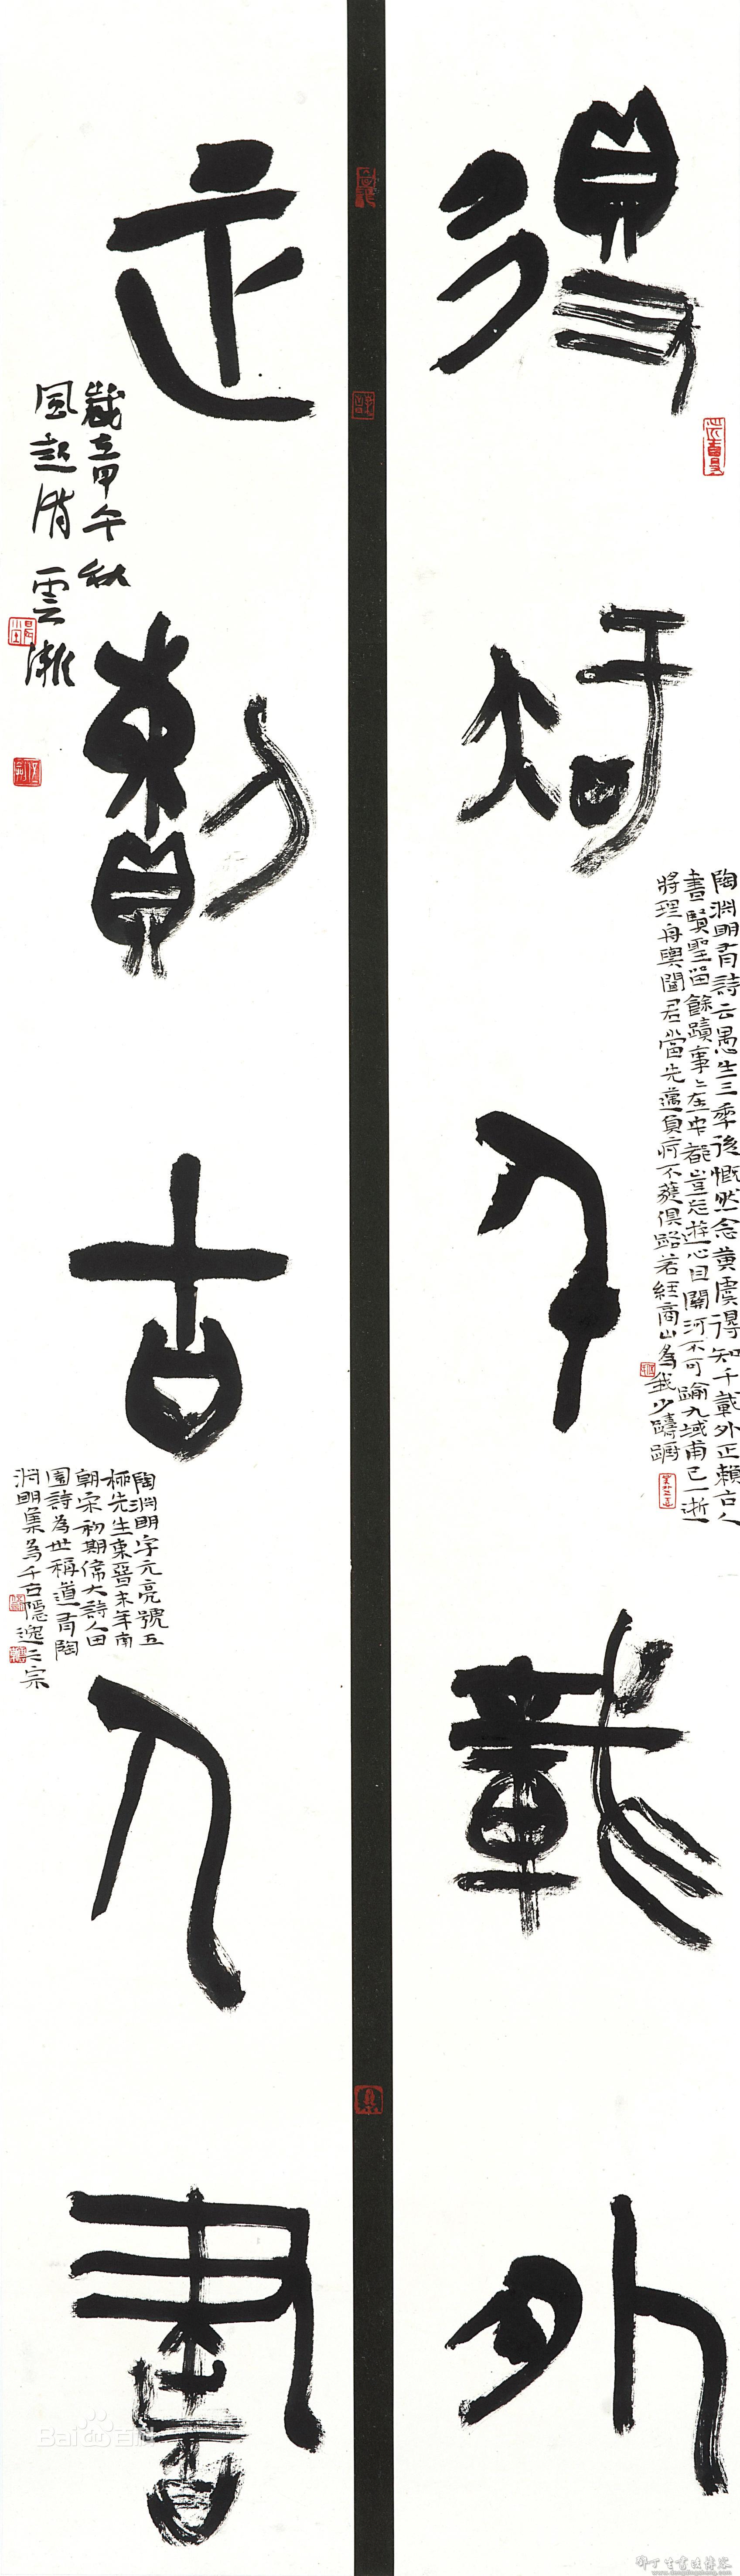 得知千載外
陶淵明有詩云愚生三季後慨然念黃虞得知千載外正賴古人
書賢聖留餘蹟事〻在中都豈忘遊心目關河不可踰九域甫已一逝
將理舟輿聞君當先邁負痾不獲俱路若經商山為我少躊躇
正賴古人書
歲在甲午秋
風起時雲
陶淵明字元亮號五
柳先生東晉末年南
朝宋初期偉大詩人田
園詩為世稱道有陶
淵明集為千古隱逸之宗
Bai百科